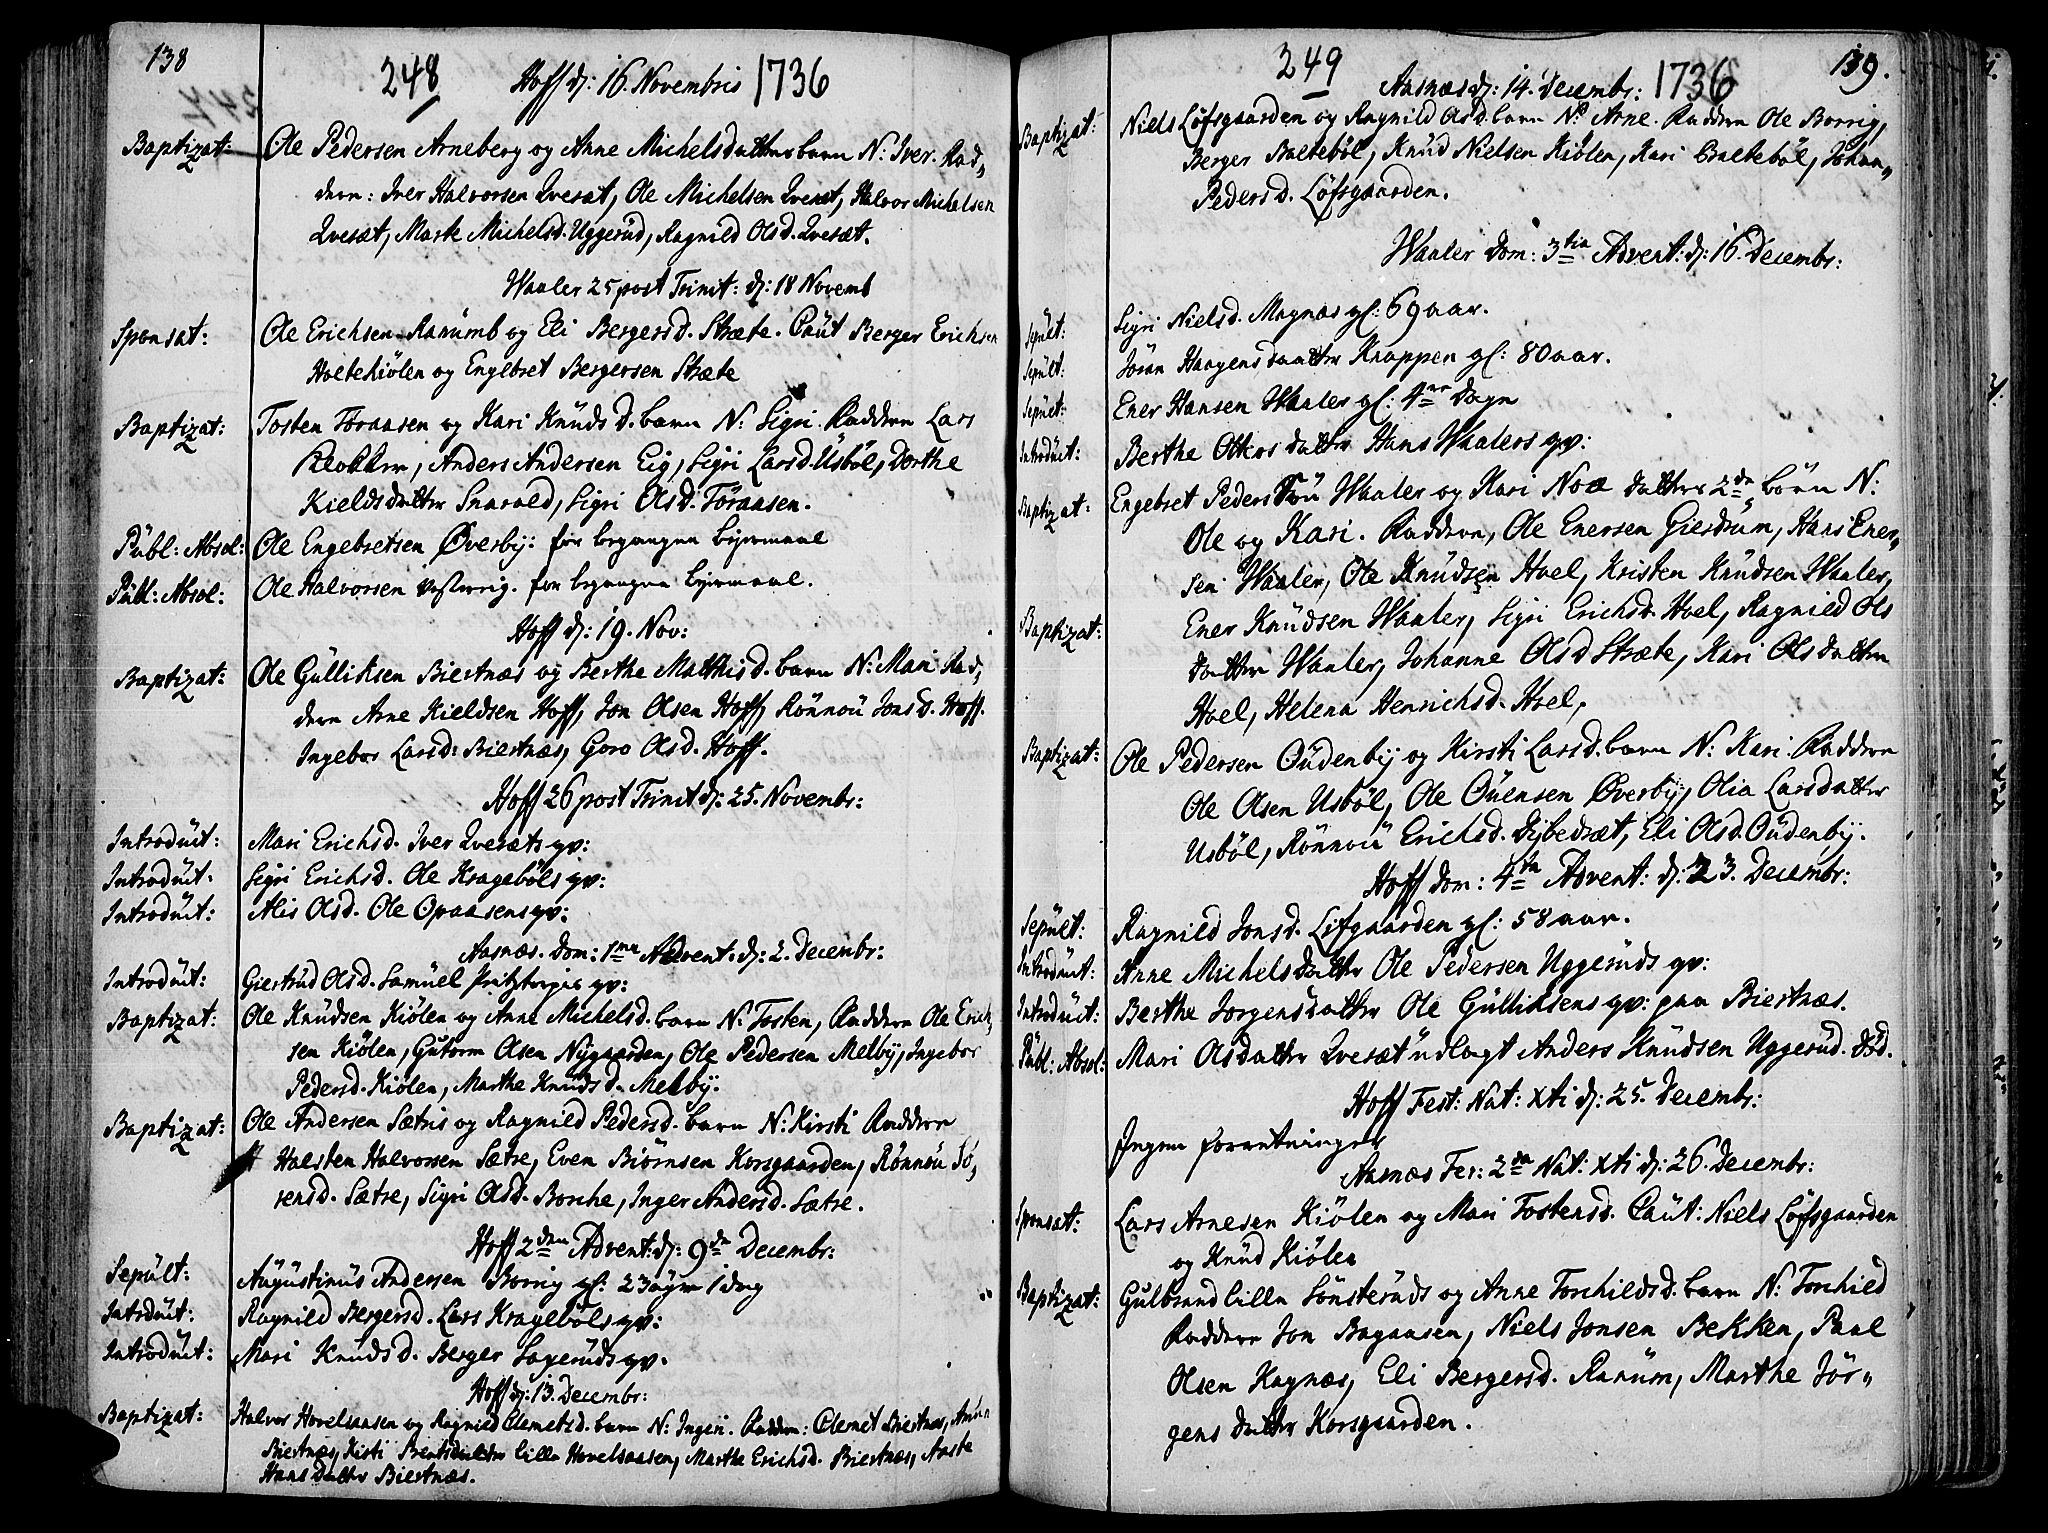 138
248 Hoff d: 16. Novembris 1736
Baptizat: Ole Pedersen Arneberg og Anne Michelsdatters barn N: Iver. Fad,
dern: Iver Halvorsen Qvesæt, Ole Michelsen Qvesæt, Halvor Michelsen
Qvesæt, Marte Michelsd. Uggerüd, Ragnild Olsd. Qvesæt.
Waaler 25 post Trinit: d: 18 Novemb
Sponsat: Ole Erichsen Ranümb og Eli Bergersd. Stræte. Caüt Berger Erichsen
Holtekiölen og Engebret Bergersen Stræte
Baptizat: Tosten Töraasen og Kari Knüdsd. barn N: Sigri. Faddern Lars
Klokker, Anders Andersen Eig, Sigri Larsd. Üsböl, Dorthe
Kieldsdatter Snarold, Sigri Olsd. Töraasen.
Pübl: Absol: Ole Engebretsen Øverby: for begangen leyermaal
Pübl: Absol: Ole Halvorsen for begangen leyermaal.
Hoff d: 19. Nov:
Baptizat: Ole Gülliksen Biertnæs og Berthe Matthisd. barn N: Mari Fad,
dern Arne Kieldsen Hoff, Jon Olsen Hoff, Rönnoü Jonsd. Hoff.
Ingebor Larsd: Biertnæs, Goro Olsd. Hoff.
Hoff 26 post Trinit d: 25. Novembr:
Introdüit: Mari Erichsd. Iver Qvesæts qv:
Introdüit. Sigri Erichsd. Ole Kragebøls qv:
Introdüit: Alis Olsd. Ole Opaasens qv:
Aasnæs. Dom: 1ma Advent. d: 2. Decembr:
Introdüit: Giertrüd Olsd. Samüel qv:
Baptizat: Ole Knüdsen Kiölen og Anne Michelsd. barn N: Tosten, Faddern Ole Erich,
sen Kiölen, Gutorm Olsen Nygaarden, Ole Pedersen Melby, Ingebor
Pedersd. Kiölen, Marthe Knudsd. Melby.
Baptizat: Ole Andersen Sætris og Ragnild Pedersd. barn N: Kirsti Faddern
Halsten Halvorsen Sætre, Even Biörnsen Korsgaarden, Rönnou Sö,
rensd. Sætre, Sigri Olsd. Borche, Inger Andersd. Sætre.
Hoff 2den Advent: d: 9de Decembr:
Sepült: Aügüstinüs Andersen Borrig gl: 23 uger 1 dag
Introdüit: Ragnild Bergersd. Lars Krageböls qv:
Introdüit: Mari Knüdsd. Berger Sagerüds qv.
Hoff d: 13. Decembr:
Baptizat: Halvor Hovelsaasen og Ragnild Clemetsd. barn N: Ingeri. Faddern: Clemet Biertnæs, Anders
Biertnæs, Kirsti lille Hovelsaasen, Marthe Erichsd. Biertnæs, Aaste
Hansdatter Biertnæs.
139.
249 Aasnæs d: 14. Decembr: 1736
Baptizat: Niels Löfsgaarden og Ragnild Olsd. barn N: Arne. Faddern Ole Borrig,
Berger Boltebøl, Knüd Nielsen Kiölen, Kari Boltebøl, Johan,
Pedersd. Löfsgaarden.
Waaler Dom: 3tia Advent: d: 16. Decembr:
Sepült: Sigri Nielsd. Magnæs gl: 69 aar.
Sepült: Jöran Haagensdaatter Knappen gl: 80 aar.
Sepült: Ener Hansen Waaler gl: 4re Dage
Introdüit: Berthe Ottersdatter Hans Waalers qv:
Baptizat: Engebret Pedersen Waaler og Kari Noædatters 2de börn N:
Ole og Kari. Faddern, Ole Enersen Gierdrüm, Hans Ener,
sen Waaler, Ole Knüdsen Hoel, Kristen Knüdsen Waaler,
Baptizat: Ener Knüdsen Waaler, Sigri Erichsd. Hoel, Ragnild Ols
datter Waaler, Johanne Olsd Stræte, Kari Olsdatter
Hoel, Helena Henrichsd. Hoel,
Baptizat: Ole Pedersen Oüdenby og Kirsti Larsd. barn N: Kari. Faddern
Ole Olsen Usböl, Ole Oüensen Øverby, Olia Larsdatter
Usböl, Rönnoü Erichsd. Dybedræt, Eli Olsd. Oüdenby.
Hoff Dom: 4ta Advent: d: 23. Decembr:
Sepült: Ragnild Jonsd. Löfgaarden gl: 58 aar.
Introdüit: Anne Michelsdatter Ole Pedersen Uggerüds qv:
Introdüit: Berthe Jorgensdatter Ole Gülliksens qv: paa Biertnæs.
Pübl: Absol: Mari Olsdatter Qvesæt udlagt Anders Knüdsen Uggerüd. död.
Hoff Fest: Nat: Xti d: 25. Decembr:
Ingen forretninger
Aasnæs Fer: 2da Nat: Xti d: 26. Decembr:
Sponsat: Lars Arnesen Kiölen og Mari Tostensd. Caüt: Niels Löfsgaarden
og Knüd Kiölen
Baptizat: Gulbrand lille Sönsterüds og Anne Torchildsd. barn N: Torchild
Faddern Jon Bagaasen, Niels Jonsen Bekken, Paal
Olsen Hagnæs, Eli Bergersd. Ranüm, Marthe Jör,
gensdatter Korsgaarden.